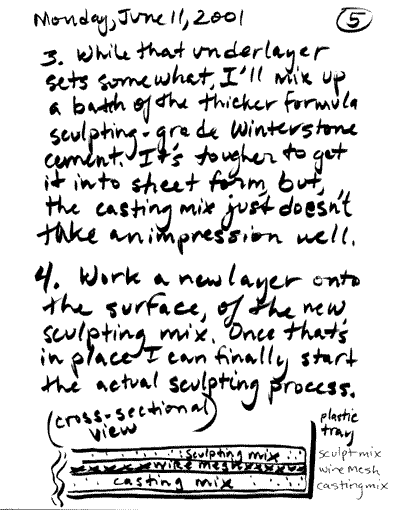 Monday, June 11, 2001
5
3. While that underlayer
sets somewhat, I'll mix up
a bath of the thicker formula
sculpting-grade Winterstone
cement. It's tougher to get
it into sheet form, but,
the casting mix just doesn't
take an impression well.
4. Work a new layer onto
the surface, of the new
sculpting mix. Once that's
in place I can finally start
the actual sculpting process.
(cross-sectional
view)
plastic
tray
sculpting mix
sculpt mix
wire mesh
wire mesh
casting mix
casting mix